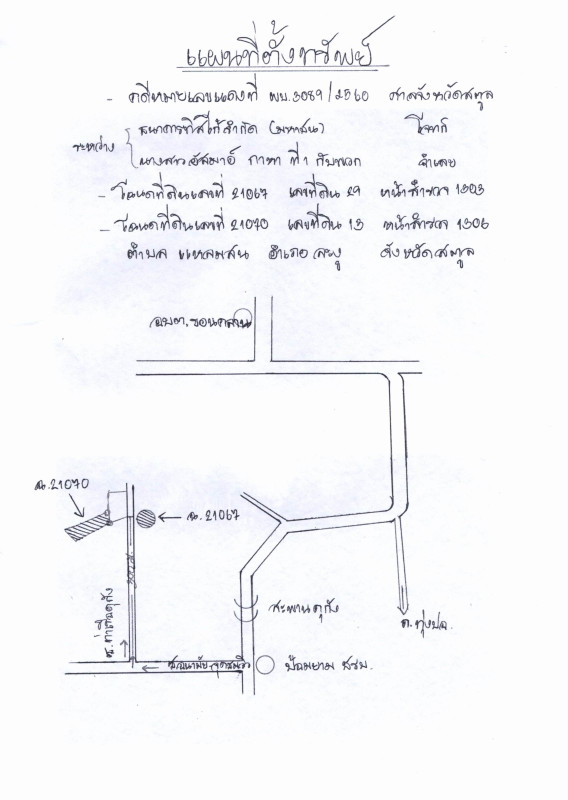 แผนที่ตั้งทรัพย์
- คดีหมายเลขแดงที่ ผบ.3089/2560 ศาลจังหวัดสตูล
ระหว่าง
ธนาคารทิสโก้จำกัด (มหาชน) โจทก์
นางสาวอัสมาอ์ กาหา ที่ 1 กับพวก จำเลย
- โฉนดที่ดินเลขที่ 21067 เลขที่ดิน 29 หน้าสำรวจ 1303
- โฉนดที่ดินเลขที่ 21070 เลขที่ดิน 13 หน้าสำรวจ 1306
ตำบล แหลมสน อำเภอ ละงู จังหวัดสตูล
อบต.ขอนคลาน
ฉ.21070
ฉ.21067
สะพานดุกัง
ต.ทุ่งบุ
ป้อมยาม สชบ.